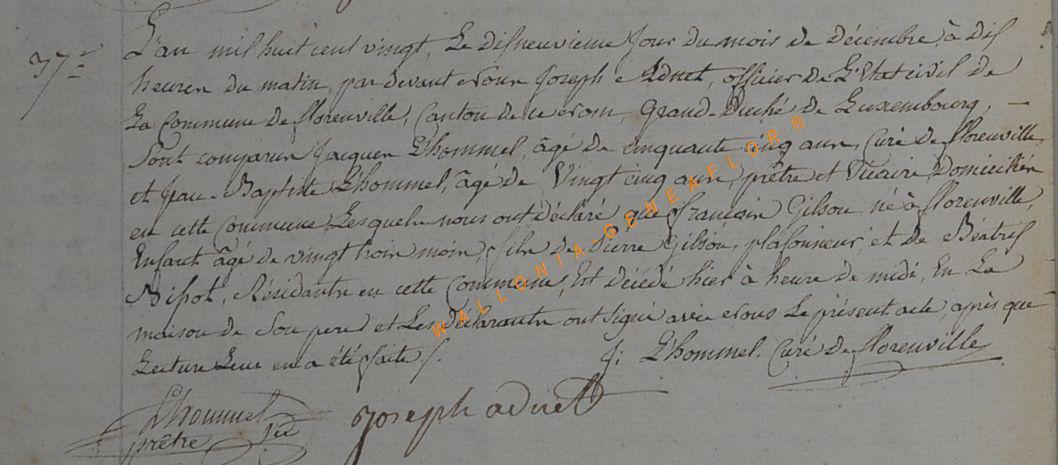 37e
L'an mil huit cent vingt, Le disneuvieme jour du mois de décembre, à dis
heures du matin, par devant nous Joseph Adnet, officier de L'Etat civil de
La Commune de florenville, Canton de ce nom, Grand-Duché de Luxembourg, —
Sont comparus Jacques L'hommel, âgé de cinquante cinq ans, Curé de florenville,
et Jean-Baptiste L'hommel, âgé de Vingt cinq ans, prêtre et Vicaire, Domiciliés
en cette Commune, Lesquels nous ont déclaré que François Gilson, né à florenville,
Enfant âgé de vingt trois mois, fils de Pierre Gilson, plafonneur, et de Béatrix
Résidants en cette Commune, Est décédé hier à heure de midi, En La
maison de Son pere, et Les Déclarants ont signé avec Nous Le présent acte, après que
Lecture Leur en a été faite /.
J: L'hommel. Curé de florenville
L'hommel
prêtre
joseph adnet
WALLONIA-GENEAFLOR®